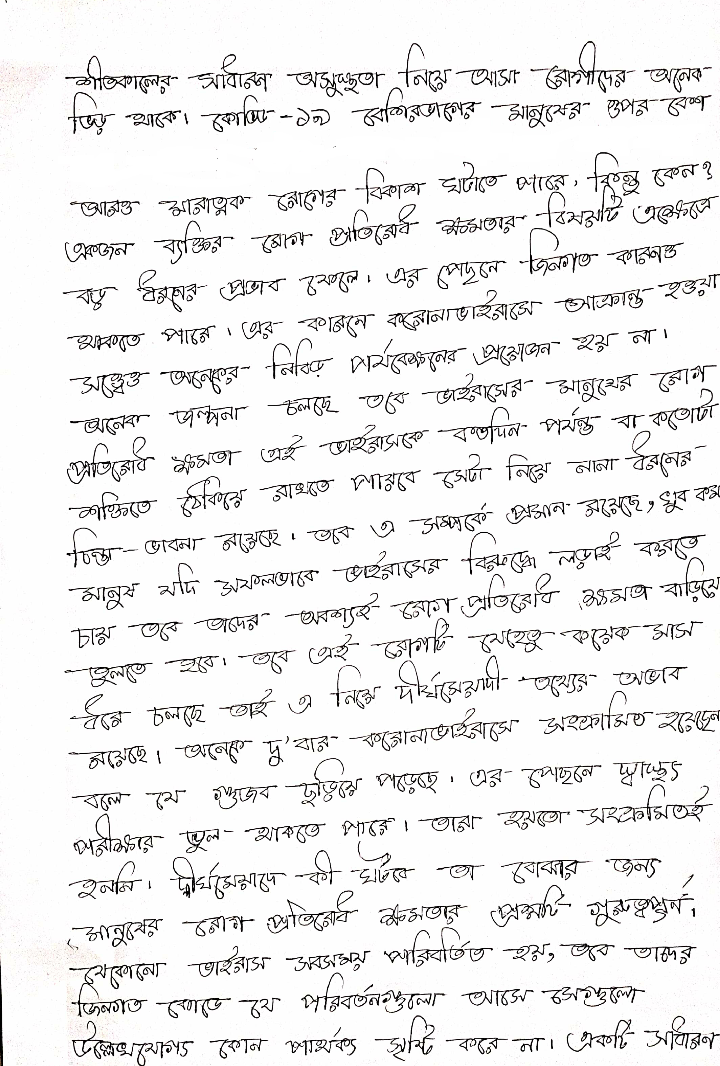 শীতকালের সাধারন অসুস্থতা নিয়ে আসা রোগীদের অনেক
ভিড় থাকে। কোভিড-১৯ বেশিরভাগের মানুষের ওপর বেশ
আরও মারাত্মক রোগের বিকাশ ঘটাতে পারে, কিন্তু কেন?
একজন ব্যক্তির রোগ প্রতিরোধ ক্ষমতার বিষয়টি এক্ষেত্রে
বড় ধরনের প্রভাব ফেলে। এর পেছনে জিনগত কারনও
থাকতে পারে। এর কারনে করোনাভাইরাসে আক্রান্ত হওয়া
সত্ত্বেও অনেকের নিবিড় পর্যবেক্ষনের প্রয়োজন হয় না।
অনেক জল্পনা চলছে তবে ভাইরাসের মানুষের রোগ
প্রতিরোধ ক্ষমতা এই ভাইরাসকে কতদিন পর্যন্ত বা কতোটা
শক্তিতে ঠেকিয়ে রাখতে পারবে সেটা নিয়ে নানা ধরনের
চিন্তা-ভাবনা রয়েছে। তবে এ সম্পর্কে প্রমান রয়েছে, খুব কম
মানুষ যদি সফলভাবে ভাইরাসের বিরুদ্ধে লড়াই করতে
চায় তবে তাদের অবশ্যই রোগ প্রতিরোধ ক্ষমতা বাড়িয়ে
তুলতে হবে। তবে এই রোগটি যেহেতু কয়েক মাস
ধরে চলছে তাই এ নিয়ে দীর্ঘমেয়াদী তথ্যের অভাব
রয়েছে। অনেকে দু'বার করোনাভাইরাসে সংক্রামিত হয়েছেন
বলে যে গুজব ছড়িয়ে পড়েছে। এর পেছনে স্বাস্থ্য
পরীক্ষার ভুল থাকতে পারে। তারা হয়তো সংক্রামিতই
হননি। দীর্ঘমেয়াদে কী ঘটবে তা বোঝার জন্য
মানুষের রোগ প্রতিরোধ ক্ষমতার প্রশ্নটি গুরুত্বপূর্ন,
যেকোনো ভাইরাস সবসময় পরিবর্তিত হয়, তবে তাদের
জিনগত কোডে যে পরিবর্তনগুলো আসে সেগুলো
উল্লেখযোগ্য কোন পার্থক্য সৃষ্টি করে না। একটি সাধারন